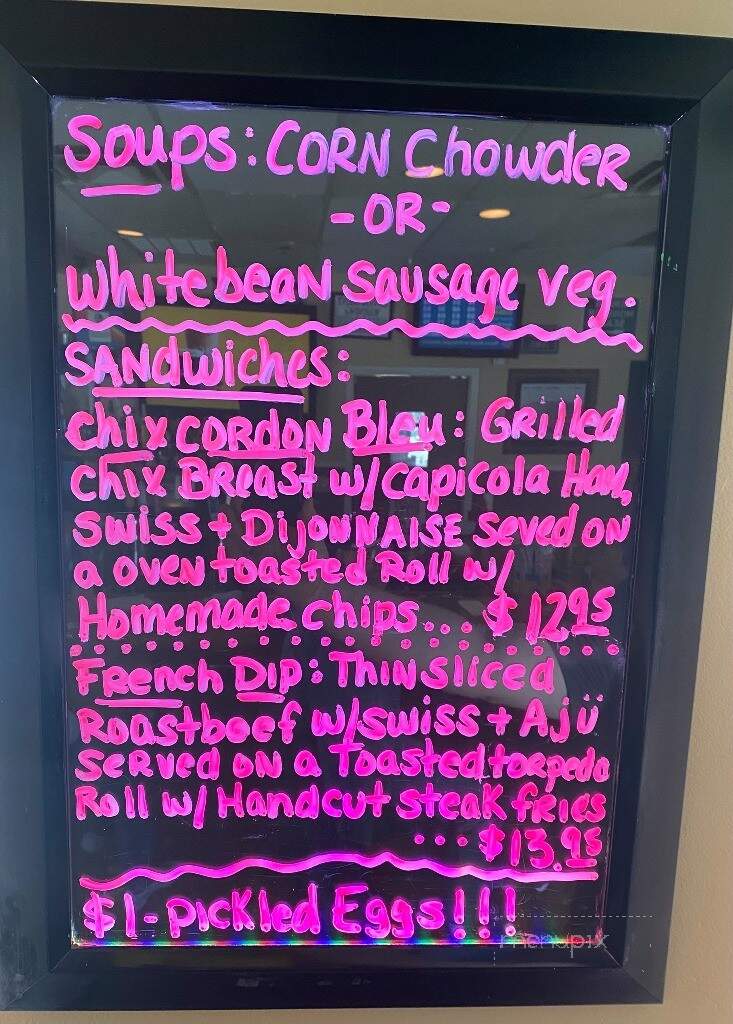 Soups: CORN Chowder
- OR -
White bean Sausage veg.
SANdwiches:
Chix CORDON Bleu: GRilled
Chix BReast w/capicola Ham,
Swiss + DijonNAISE Seved ON
a oven toasted Roll w/
Homemade chips... $12.95
French Dip: Thin Sliced
Roastboef w/swiss + Ajü
SeRved ON a Toasted torpedo
Roll w/ Handcut steak fries
... $13.95
$1 - pickled Eggs!!!
menupix